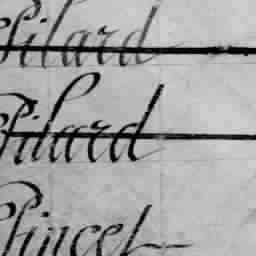 Pilard
Pilard
Pincet